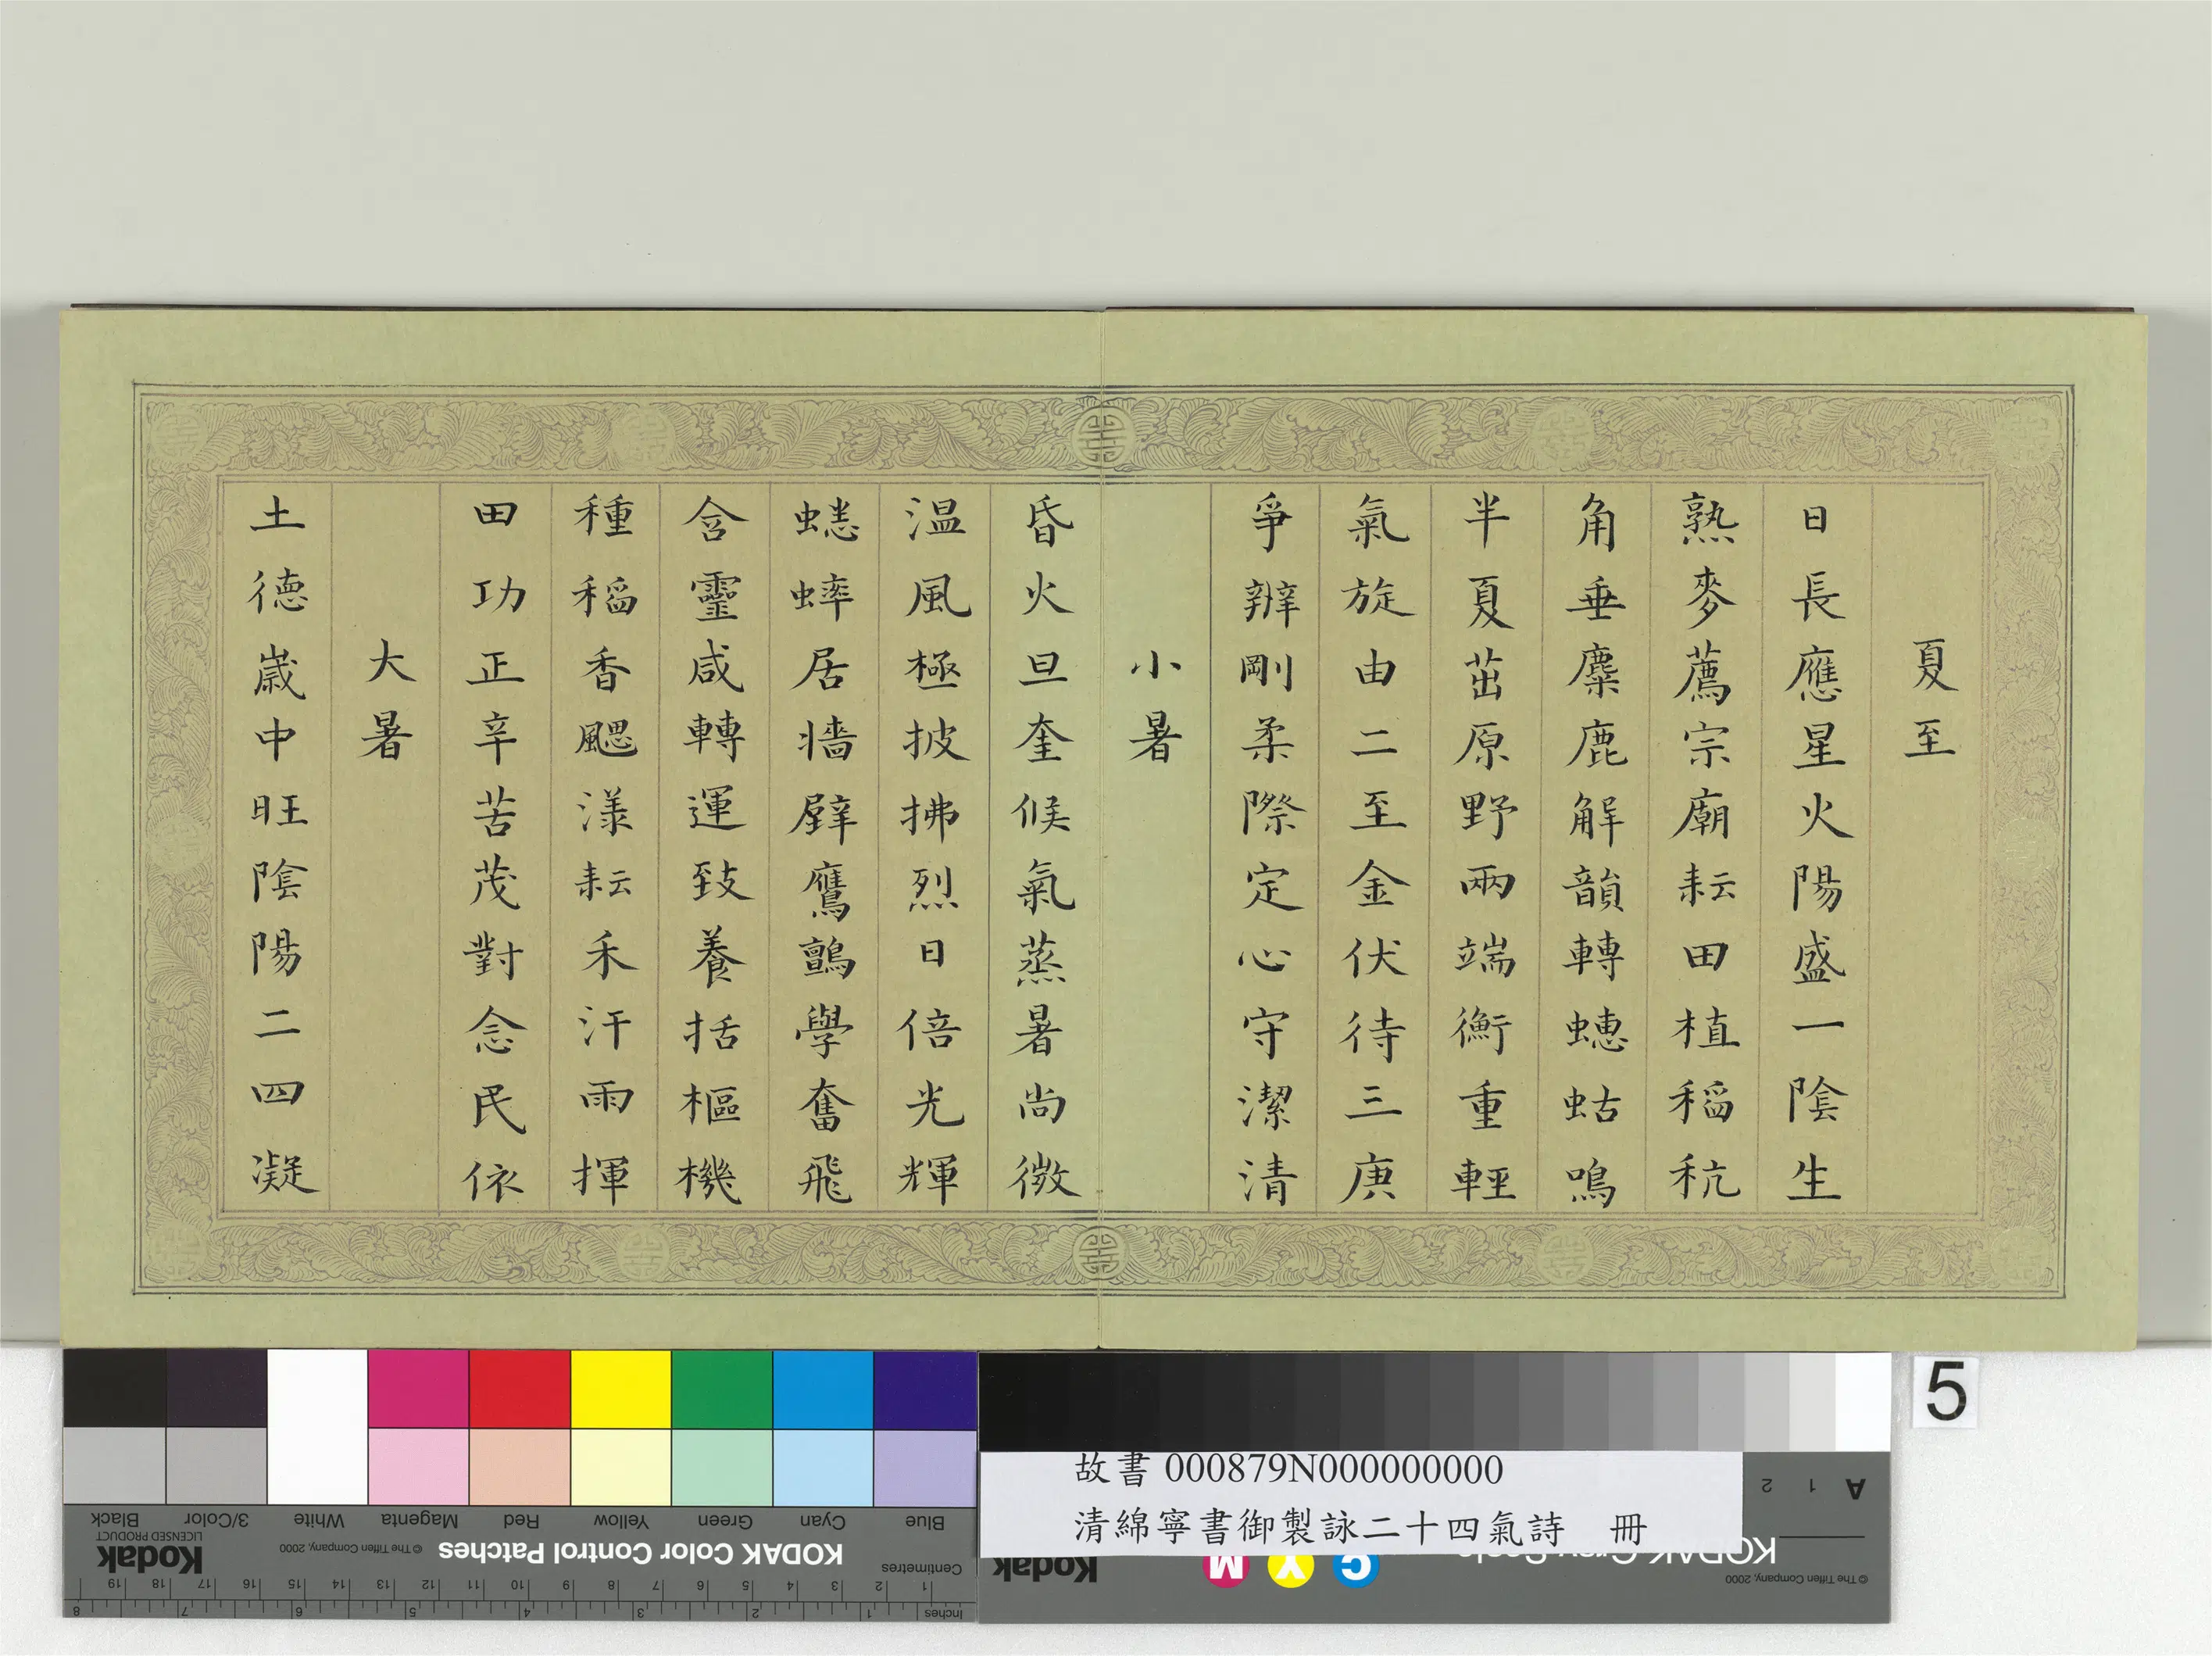 夏至
日長應星火陽盛一陰生
熟麥薦宗廟耘田植稻秔
角垂麋鹿解韻轉蟪蛄鳴
半夏茁原野兩端衡重輕
氣旋由二至金伏待三庚
爭辨剛柔際定心守潔清
小暑
昏火旦奎候氣蒸暑尚微
温風極披拂烈日倍光輝
蟋蟀居墻壁鷹鸇學奮飛
含靈咸轉運致養括樞機
種稻香颸漾耘禾汗雨揮
田功正辛苦茂對念民依
大暑
土德嵗中旺陰陽二四凝
5
故書 000879N000000000
清綿寧書御製詠二十四氣詩 冊
Blue Cyan Green Yellow Red Magenta White 3/Color Black
KODAK Color Control Patches © The Tiffen Company, 2000 Kodak LICENSED PRODUCT
Centimetres 1 2 3 4 5 6 7 8 9 10 11 12 13 14 15 16 17 18 19
Inches 1 2 3 4 5 6 7 8
A 1 2
KODAK Gray Scale
C Y M Kodak
© The Tiffen Company, 2000